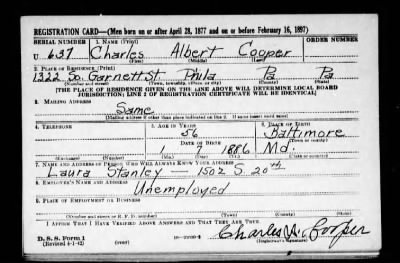 REGISTRATION CARD—(Men born on or after April 28, 1877 and on or before February 16, 1897)
SERIAL NUMBER 1. NAME (Print) ORDER NUMBER
U 637 Charles Albert Cooper
(First) (Middle) (Last)
2. PLACE OF RESIDENCE (Print)
1322 So. Garnett St Phila Pa Pa
(Number and street) (Town, township, village, or city) (County) (State)
[THE PLACE OF RESIDENCE GIVEN ON THE LINE ABOVE WILL DETERMINE LOCAL BOARD
JURISDICTION; LINE 2 OF REGISTRATION CERTIFICATE WILL BE IDENTICAL]
3. MAILING ADDRESS
Same
[Mailing address if other than place indicated on line 2. If same insert word same]
4. TELEPHONE 5. AGE IN YEARS 6. PLACE OF BIRTH
56 Baltimore
DATE OF BIRTH (Town or county)
1 7 1886 Md.
(Exchange) (Number) (Mo.) (Day) (Yr.) (State or country)
7. NAME AND ADDRESS OF PERSON WHO WILL ALWAYS KNOW YOUR ADDRESS
Laura Stanley — 1502 S. 20th
8. EMPLOYER'S NAME AND ADDRESS
Unemployed
9. PLACE OF EMPLOYMENT OR BUSINESS
(Number and street or R. F. D. number) (Town) (County) (State)
I AFFIRM THAT I HAVE VERIFIED ABOVE ANSWERS AND THAT THEY ARE TRUE.
D. S. S. Form 1
(Revised 4-1-42) (over) Charles A. Cooper
(Registrant's signature)